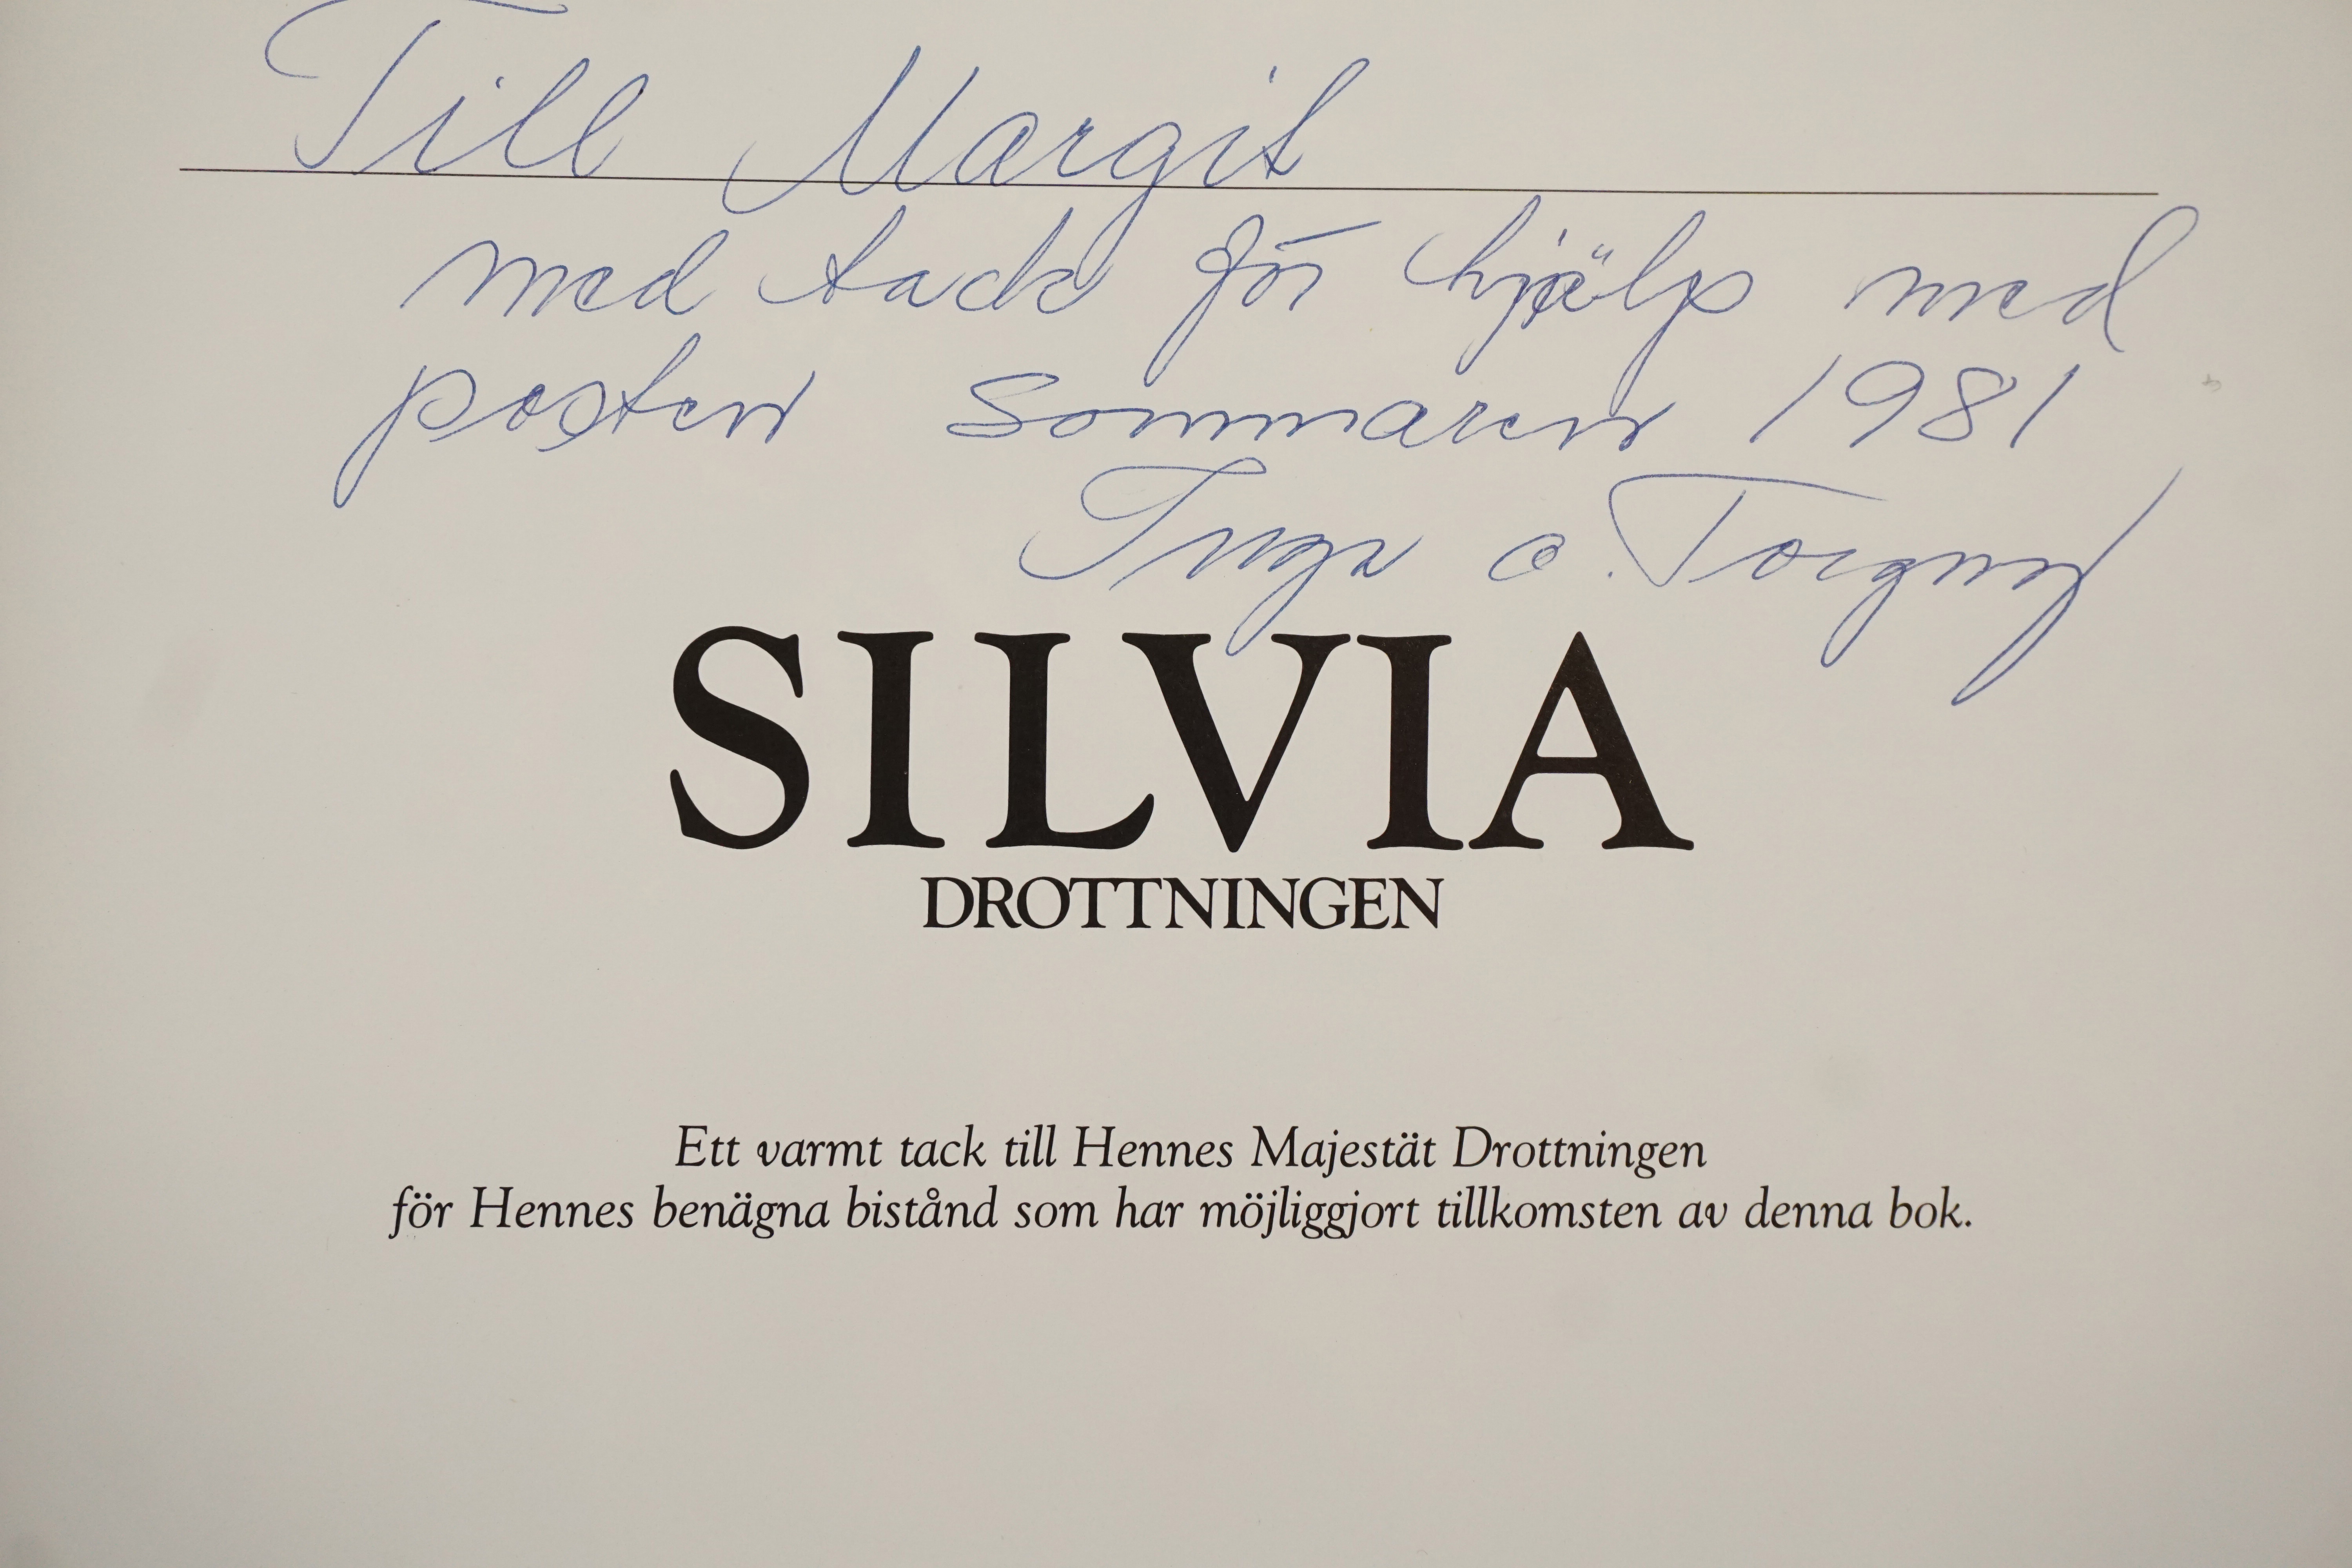 Till Margit
med tack för hjälp med
posten sommaren 1981
Inga o. Torgny
SILVIA
DROTTNINGEN
Ett varmt tack till Hennes Majestät Drottningen
för Hennes benägna bistånd som har möjliggjort tillkomsten av denna bok.